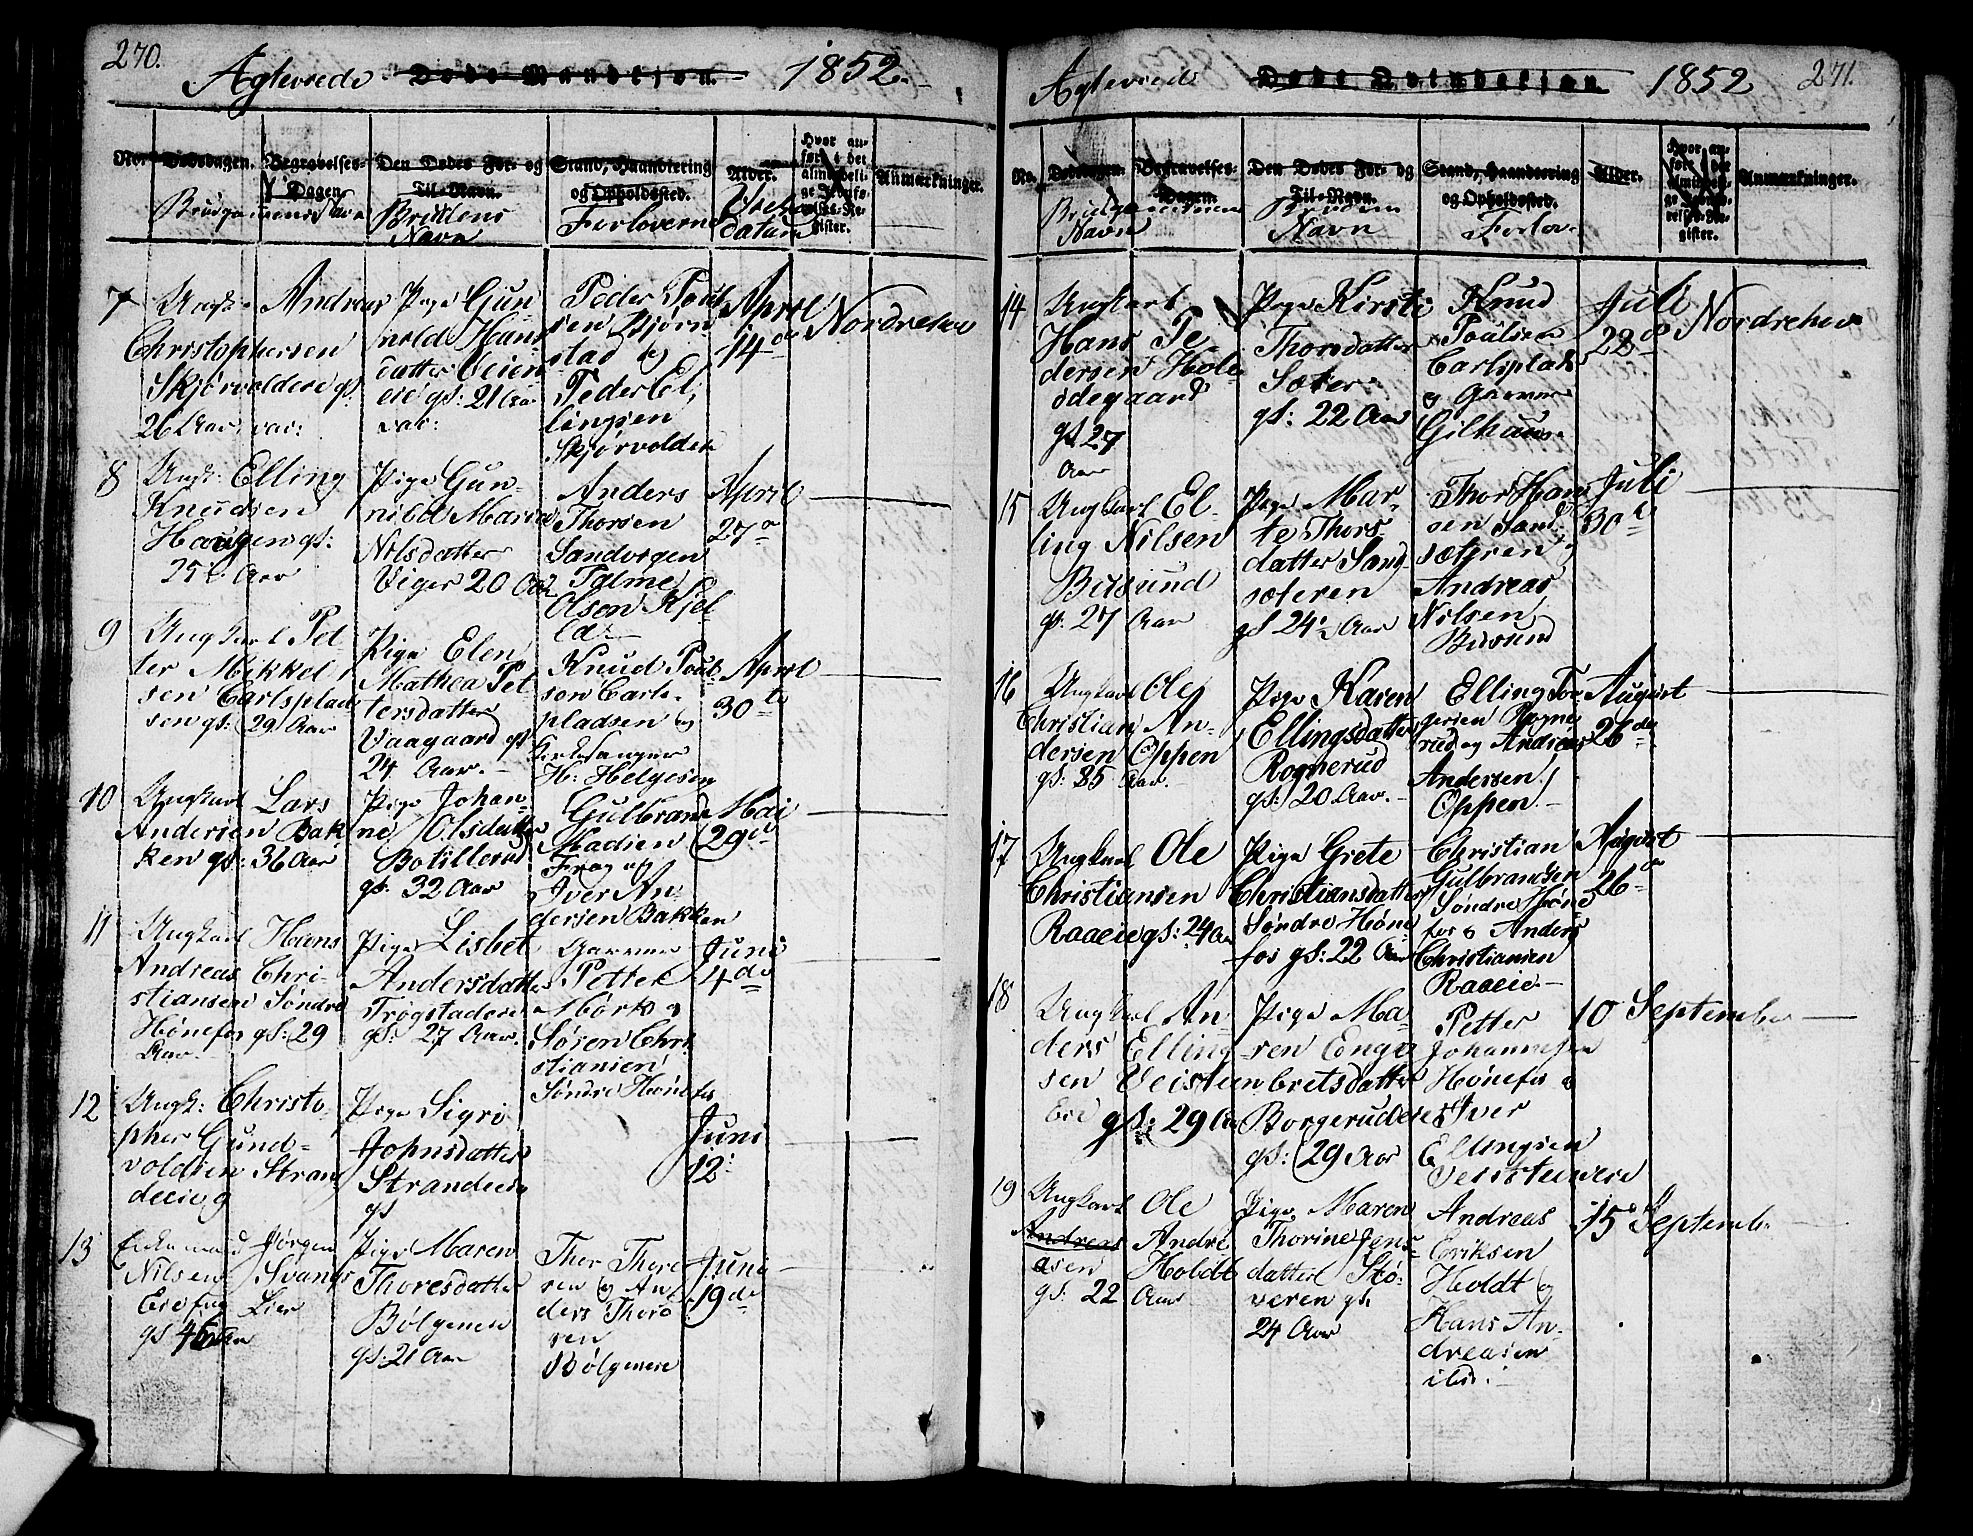 270.
Agteviede Døde Mandkjøn. 1852.
No. Dødsdagen. Begravelses-Dagen. Den Dødes For- og Til-Navn. Stand, Haandtering og Opholdssted. Alder. Hvor anført i det almindelige Jevnførelses-Register. Anmærkninger.
Brudgommens Navn Brudens Navn Forloverne datum
7
Ungk: Andreas
Christophersen
Skjørvoldeie gs:
26 Aar, vac:
Pige Gun
nild Hans
datter Veien
eie gs: 21 Aar
vac:
Peder Poul
sen Bjørn
stad og
Peder El,
lingsen
Skjørvolden
April
14de
Nordrehov
8
Ungk: Elling
Knudsen
Haugen gs:
25 Aar
Pige Gun-
nild Maria
Nilsdatter
Viger 20 Aar
Anders
Thorsen
Sandvogen
Palme
Olsen Kjel
la
April
27de
9
Ungkarl Pet-
ter Mikkel
sen Carlsplad
sen gs: 29 Aar
Pige Elen
Mathea Pet
tersdatter
Vaagaard gs
24 Aar.
Knud Poul
sen Carls-
pladsen og
Kirkesanger
H: Helgesen
April
30te
10
Ungkarl Lars
Andersen Bak
ken gs: 36 Aar
Pige Johan-
ne Olsdatter
Botillerud
gs: 32 Aar
Gulbrand
Madsen
Frog og
Iver An-
dersen Bakken
Mai
29de
11
Ungkarl Hans
Andreas Chri-
stiansen Søndre
Hønefos gs: 29
Aar
Pige Lisbet
Andersdatter
Trøgstadeie
gs: 27 Aar
Garver
Petter
Mørk og
Søren Chri
stiansen
Søndre Hønefos
Juni
4de
12
Ungk: Christo-
pher Gund-
voldsen Stran
deeie g
Pige Sigri
Johnsdatter
Strandeeie
gs
Juni
12
13
Enkemand Jørgen
Nilsen Svangs
Eie Lier
gs 46 Aar
Pige Maren
Thoresdatter
Bølgeneie
gs: 21 Aar
Thor Thore
sen og An
ders Thore
sen
Bølgeneie
Juni
19de
Agtevied Døde Qvindekjøn. 1852
271.
No. Dødsdagen. Begravelses-Dagen. Den Dødes For- og Til-Navn. Stand, Haandtering og Opholdssted. Alder. Hvor anført i det almindelige Jevnførelses-Register. Anmærkninger.
Brudgommens Navn Brudens Navn Forlov.
14
Ungkarl
Hans Pe-
dersen Hole
ødegaard
gs 27
Aar
Pige Kirsti
Thorsdatter
Sæter
gs: 22 Aar
Knud
Poulsen
Carlsplads
og Garver
Gilhuus.
Juli
28de
Nordrehov
15
Ungkarl El-
ling Nilsen
Busund
gs: 27 Aar
Pige Mar-
te Thors-
datter Sand
sæteren
gs 24 Aar
Thor Han
sen Sand
sæteren og
Andreas
Nilsen
Busund
Juli
30te
16
Ungkarl Ole
Christian An-
dersen Oppen
gs: 35 Aar.
Pige Karen
Ellingsdatter
Rognerud
gs: 20 Aar.
Elling Tor-
gersen Rogne
rud og Andreas
Andersen
Oppen.
August
26de
17
Ungkarl Ole
Christiansen
Raaeie gs: 24 Aar
Pige Grete
Christiansdatter
Søndre Høne
fos gs: 22 Aar
Christian
Gulbrandsen
Søndre Høne
fos og Anders
Christiansen
Raaeie.
August
26de
18
Ungkarl An-
ders Elling
sen Veisteen
Eie gs: 29 Aar
Pige Ma-
ren Enge
bretsdatter
Borgerudeie
gs: 29 Aar
Petter
Johannesen
Hønefos og
Iver
Ellingsen
Veisteeneie
10 September
19
Ungkarl Ole
Andreas Andre
asen Holdt
gs: 22 Aar
Pige Maren
Thorine Jens-
datter Stø-
veren gs.
24 Aar
Andreas
Eriksen
Holdt og
Hans An-
dreasen
ibid.
15 Septemb